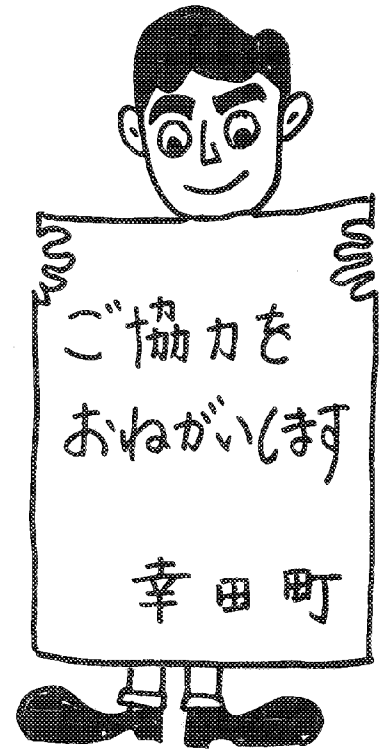 ご協力を
おねがいします
幸田町